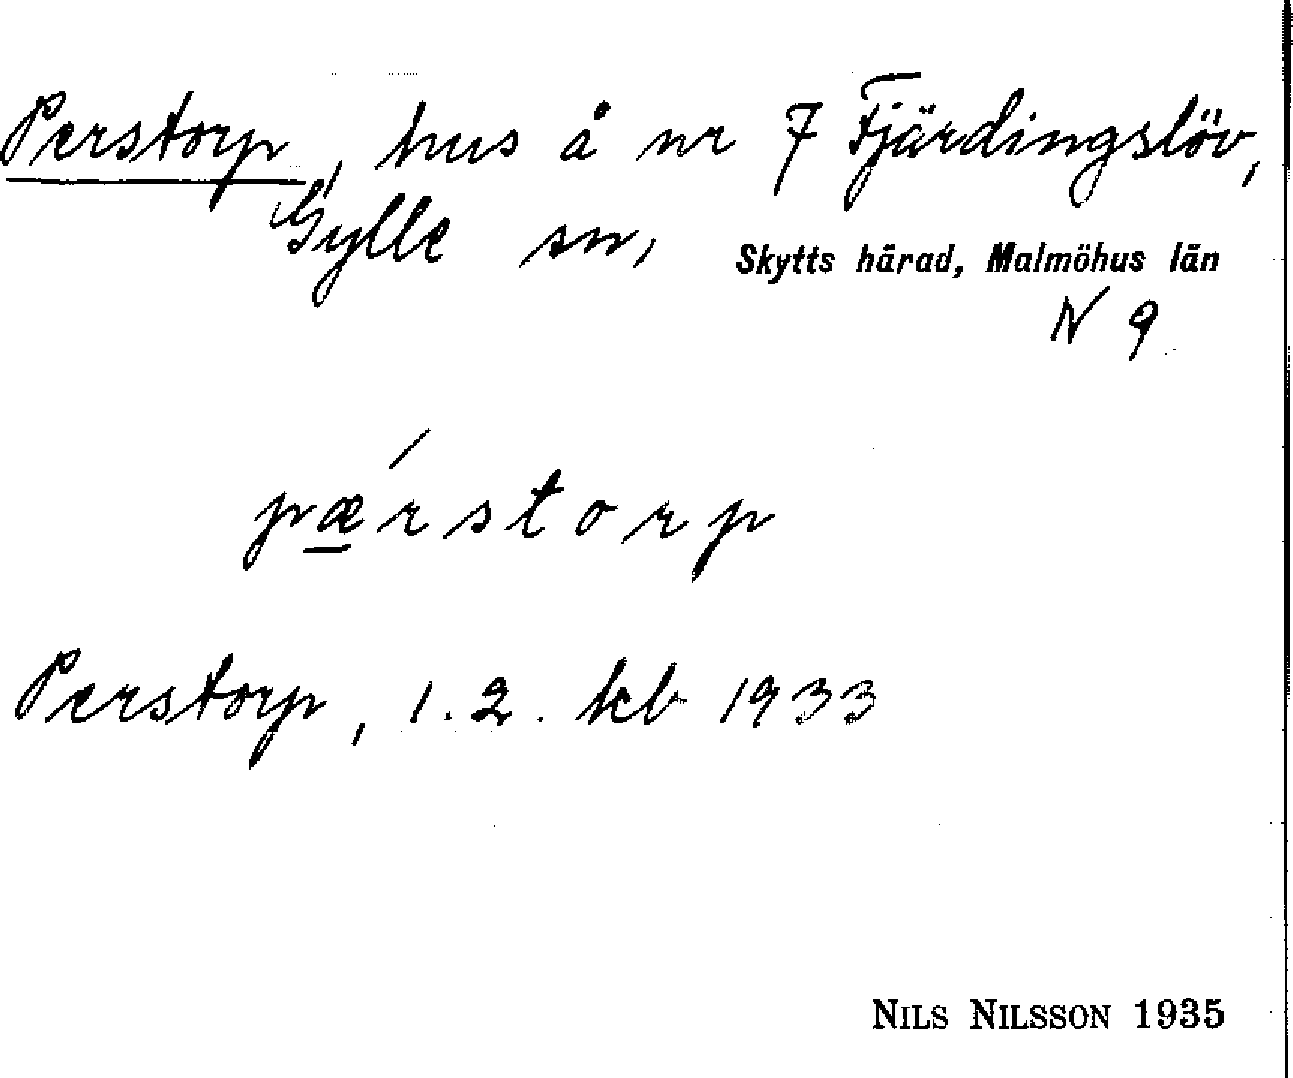 Perstorp, hus å nr 7 Fjärdingslöv,
Gylle sn, Skytts härad, Malmöhus län
N 9
pǽ̲rstorp
Perstorp, 1.2. kb 1933
NILS NILSSON 1935